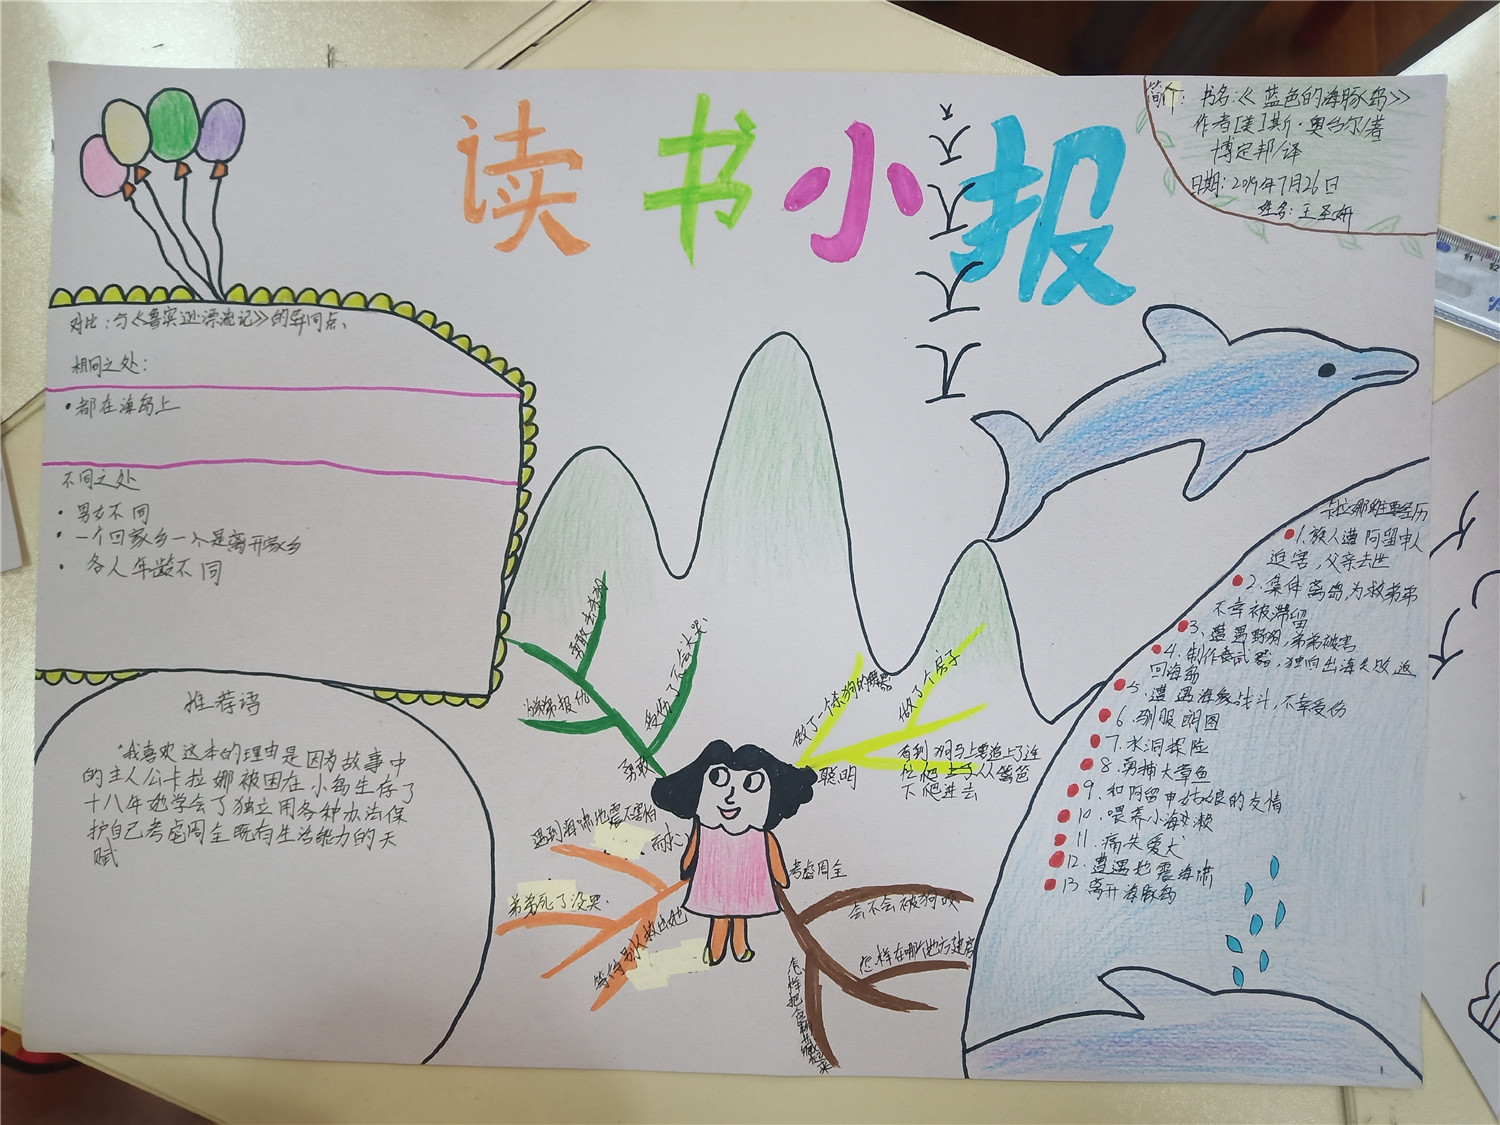 读书小报
简介：书名：《蓝色的海豚岛》
作者[美]斯·奥台尔/著
博定邦/译
日期：2019年7月26日
姓名：王圣妍
对比：与《鲁宾逊漂流记》的异同点、
相同之处：
•都在海岛上
不同之处
•男女不同
•一个回家乡一个是离开家乡
•各人年龄不同
推荐语
“我喜欢这本的理由是因为故事中
的主人公卡拉娜被困在小岛生存了
十八年她学会了独立用各种办法保
护自己考虑周全既有生活能力的天
赋
勇敢去杀狗
受伤了不会大哭
给弟弟报仇
勇敢
做了一个杀狗的
做了个房子
有利
狗马上要追上了连
忙爬上了从篱笆
下爬进去
聪明
遇到海啸地震不害怕
而心
弟弟死了没哭.
等待别人救出她
考虑周全
会不会被狗咬
怎样在哪个地方建房
怎样把
卡拉娜的主要经历
1.族人遭阿留申人
迫害，父亲去世
2.集体离岛，为救弟弟
不幸被滞留
3.遭遇野狗，弟弟被害
4.制作武器，独自出海失败返
回海岛
5.遭遇海象战斗，不幸受伤
6.驯服朗图
7.水洞探险
8.勇捕大章鱼
9.和阿留申姑娘的友情
10.喂养小海獭
11.痛失爱犬
12.遭遇地震海啸
13离开海豚岛